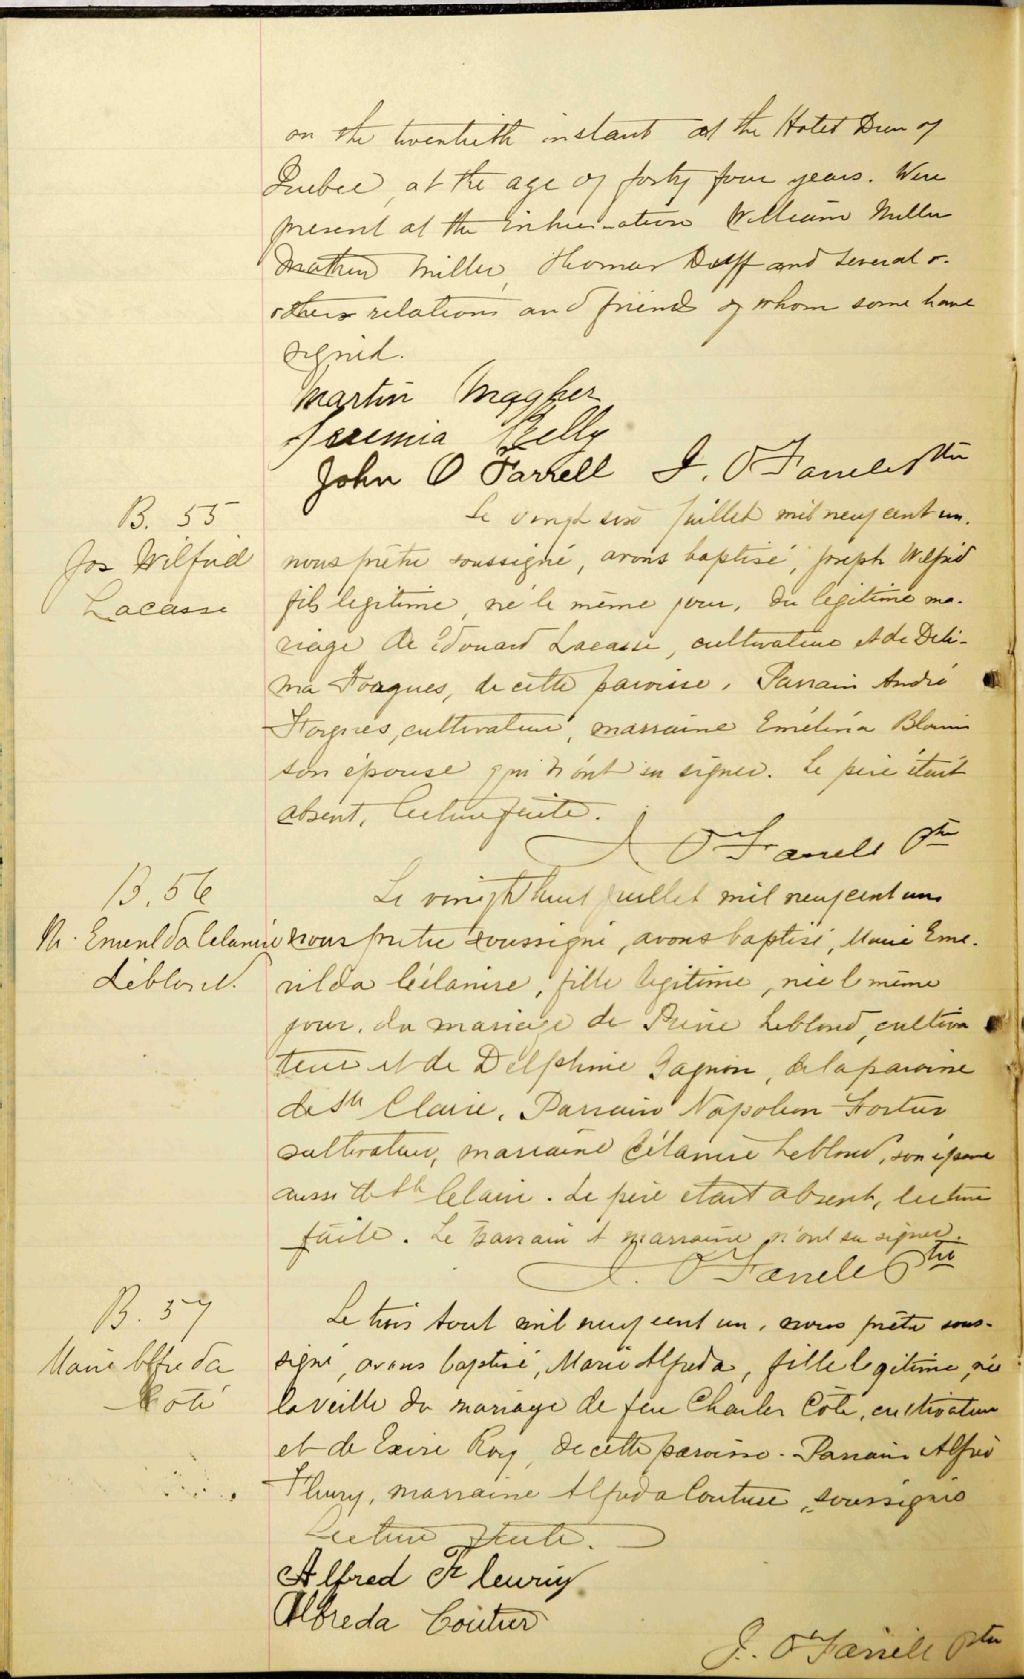 on the twentieth instant at the Hotel Dieu of
Quebec, at the age of forty four years. Were
present at the inhumation William Miller
Mathew Miller, Thomas Duff and several o-
others relations and friends of whom some have
signed.
Martin Meagher
Jeremia Kelly
John O Farrell J. O'Farrell Ptre
B. 55
Jos Wilfrid
Lacasse
Le vingt six Juillet mil neuf cent un,
nous prêtre soussigné, avons baptisé, Joseph Wilfrid
fils legitime, né le même jour, du légitime ma-
riage de Edouard Lacasse, cultivateur et de Deli-
ma Forgues, de cette paroisse. Parrain André
Forgues, cultivateur, marraine Emélina Blouin
son épouse qui n'ont su signer. Le père était
absent, lecture faite.
J. O'Farrell Ptre
B. 56
M. Emerilda Celanire
Leblond.
Le vingt huit Juillet mil neuf cent un
nous prêtre soussigné, avons baptisé, Marie Eme-
rilda Célanire, fille legitime, née le même
jour, du mariage de Pierre Leblond, cultiva
teur et de Delphine Gagnon, de la paroisse
de Ste Claire. Parrain Napoléon Fortier
cultivateur, marraine Célanire Leblond, son épouse
aussi de Ste Claire. Le père était absent, lecture
faite. Le parrain et marraine n'ont su signer.
J. O'Farrell Ptre
B. 57
Marie Alfreda
Coté
Le trois Aout mil neuf cent un, nous prêtre sous-
signé, avons baptisé, Marie Alfreda, fille legitime, née
la veille du mariage de feu Charles Côté, cultivateur
et de Exire Roy, de cette paroisse. Parrain Alfred
Fleury, marraine Alfreda Couture, soussignés
Lecture faite.
Alfred Fleury
Alfreda Coutur
J. O'Farrell Ptre